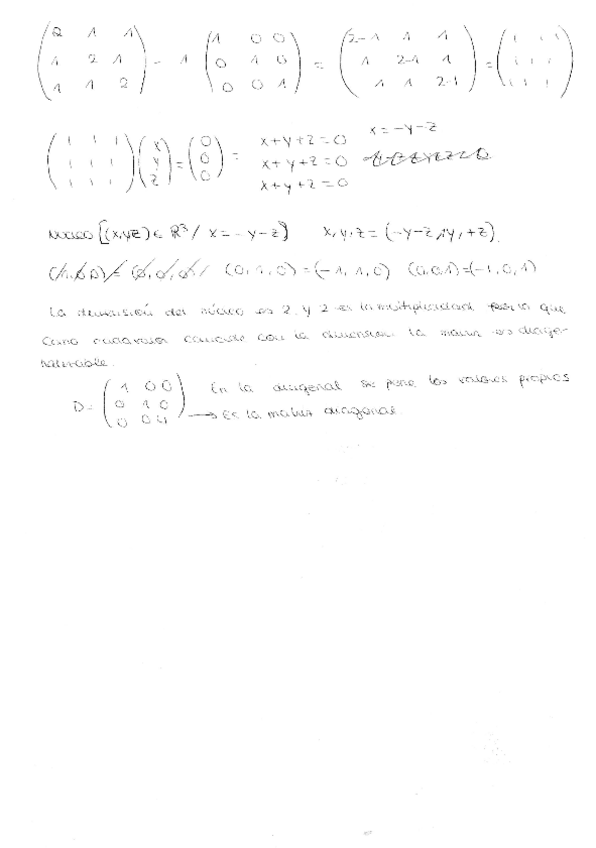 (2 1 1 / 1 2 1 / 1 1 2) - 1 (1 0 0 / 0 1 0 / 0 0 1) = (2-1 1 1 / 1 2-1 1 / 1 1 2-1) = (1 1 1 / 1 1 1 / 1 1 1)
x = -y-z
(1 1 1 / 1 1 1 / 1 1 1) (x / y / z) = (0 / 0 / 0) = x+y+z=0
x+y+z=0
x+y+z=0
Nucleo [(x,y,z) ∈ R³ / x = -y-z} x, y, z = (-y-z, y, +z).
(0,1,0) = (-1,1,0) (0,0,1) = (-1,0,1)
La dimensión del núcleo es 2, y 2 es la multiplicidad por lo que,
como coincide con la dimensión la matriz es diago-
nalizable.
D = (1 0 0 / 0 1 0 / 0 0 4) En la diagonal se pone los valores propios
→ Es la matriz diagonal.